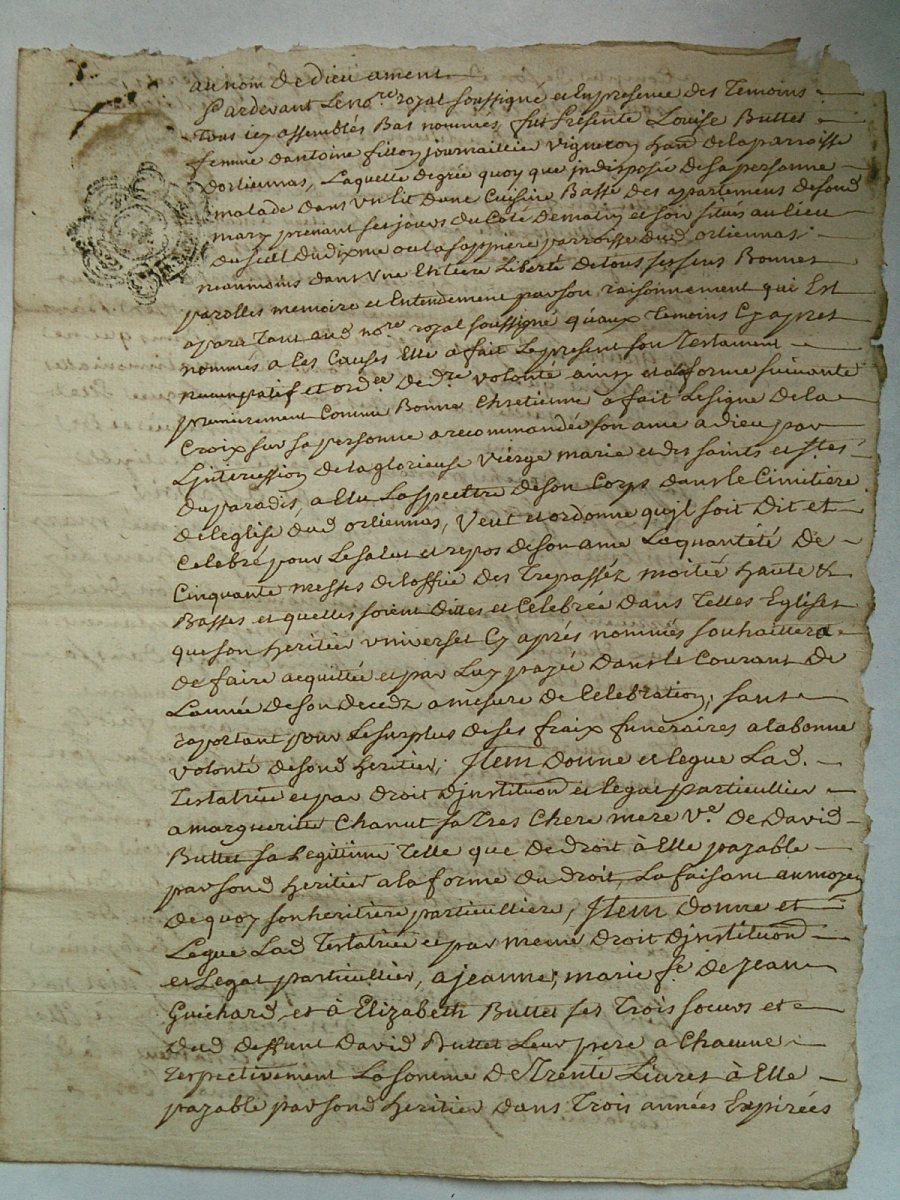 au nom de dieu ament
Pardevant le no.re royal soussigne et en presence des Temoins
Tous icy assemblés Bas nommés, fut presente Louise Buttet
femme dantoine fillon journaillier vigneron hant. de la parroisse
dorliennas, Laquelle degrée quoy que indisposée de sa personne
malade dans un lit dune Cuisine Basse des appartemens de sond
mary prenant ses jours du Coté de matin et son situés au lieu
du parroisse dud orliennas
neanmoins dans une Entiere Liberté de tous ses sens Bonnes
parolles memoire et Entendement par son raisonnement qui Est
apara Tant aud no.re royal soussigné qu'aux Temoins Cy apres
nommés a Ces Causes Elle a fait Le present son Testament
nuncupatif et ord.ee de d.re volonte ainsy et a la forme suivante
premierement Comme Bonne Chretienne a fait Le signe de la
Croix sur sa personne a recommandée son ame a dieu par
Lintercession de la glorieuse vierge marie et des saints et s.tes
du paradis, a Elu La spectre de son Corps dans le Cimitiere
de leglise dud orliennas, Veut et ordonne quil soit Dit et
Celebré pour Le salut et repos de son ame La quantité de
Cinquante messes de loffice des Trepassés moitié haute &
Basses et quelles soient Dittes et Celebrée dans Telles Eglises
que son heritier universel Cy aprés nommés souhaittera
de faire acquittée et par Luy payée dans le Courant de
Lannée de son decedz a mesure de Celebration, sans
raportant pour Le surplus de ses fraix funeraires a la bonne
volonté de sond heritier; Item donne et legue Lad.
Testatrice et par droit d'institution et legat particullier
a marguerite Chanut sa Tres Chere mere v.e De David
Buttet sa Legitime Telle que de droit à Elle payable
par sond heritier a la forme du droit, La faisant au moyen
de quoy son heritiere particulliere, Item donne et
Legue Lad Testatrice et par meme droit d'institution
et Legat particullier, a jeanne, marie f.e de jean
Guichard, et à Elizabeth Buttet ses Trois soeurs et
dud deffunt David Buttet Leur pere a Chacune
respectivement La somme de Trente Livres à Elle
payable par sond heritier dans Trois années Expirées